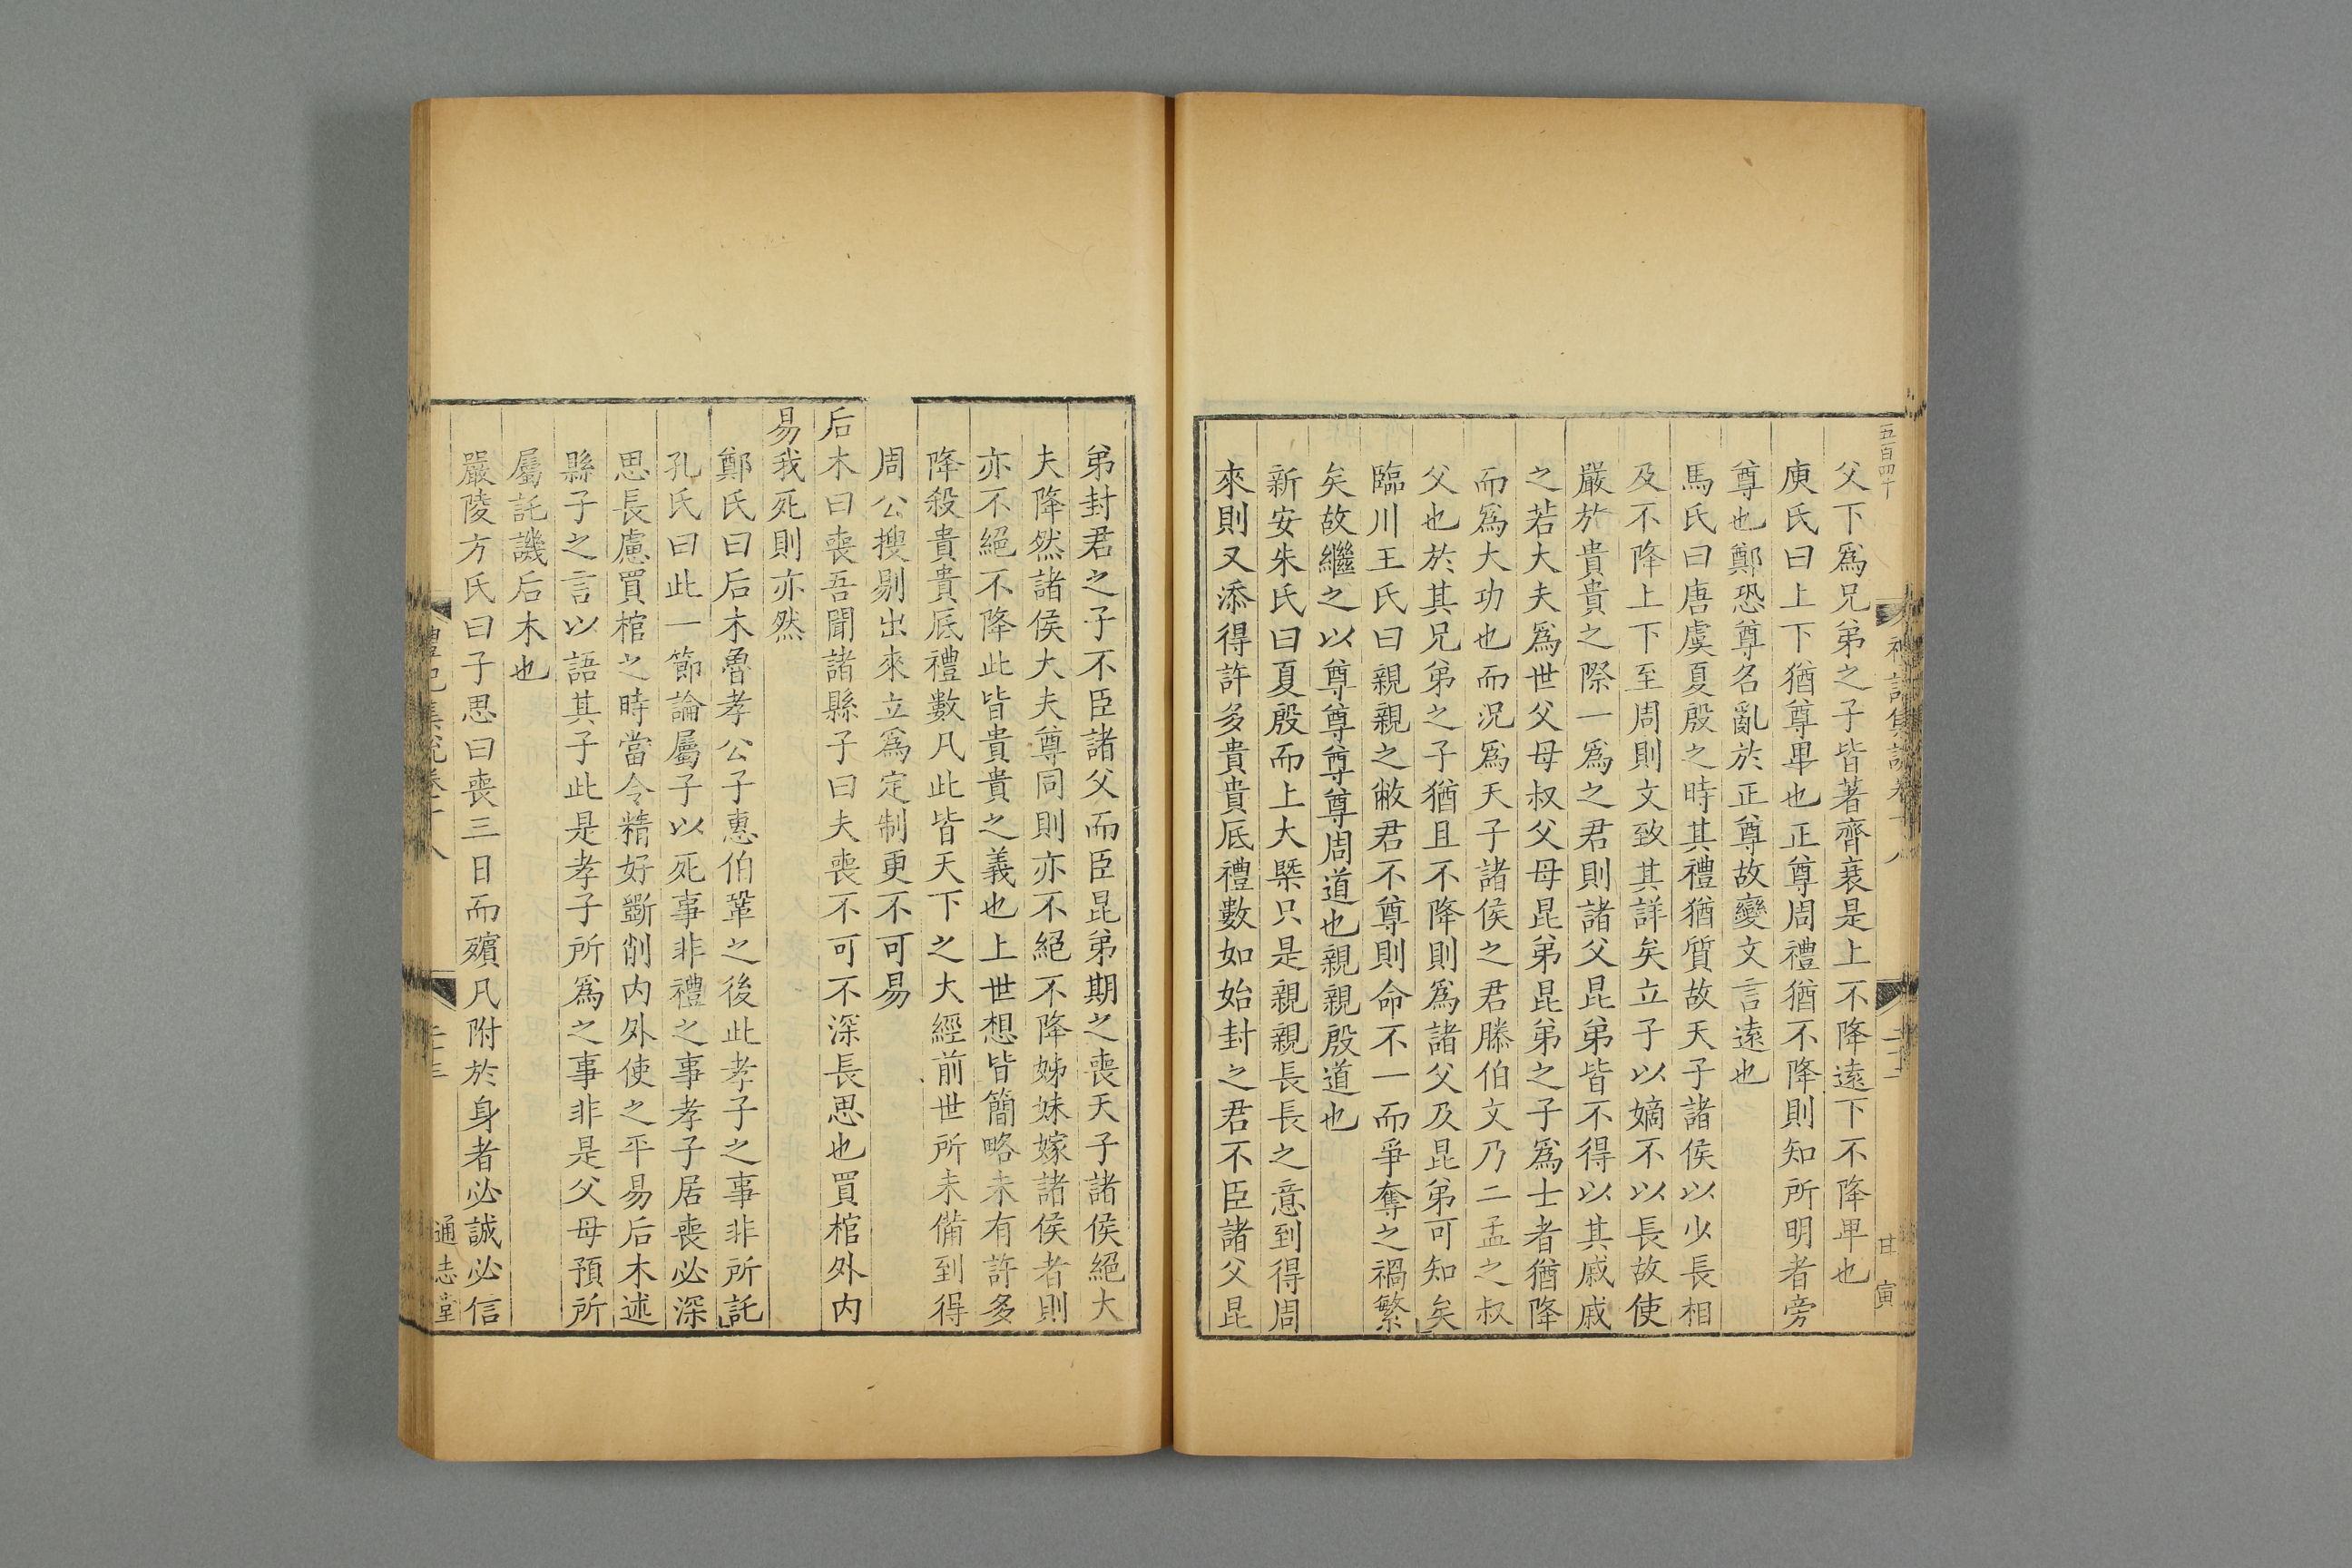 五百四十
禮記集說卷十八
甘寅
父下爲兄弟之子皆著齊衰是上不降遠下不降卑也
庾氏曰上下猶尊卑也正尊周禮猶不降則知所明者旁
尊也鄭恐尊名亂於正尊故變文言遠也
馬氏曰唐虞夏殷之時其禮猶質故天子諸侯以少長相
及不降上下至周則文致其詳矣立子以嫡不以長故使
嚴於貴貴之際一爲之君則諸父昆弟皆不得以其戚戚
之若大夫爲世父母叔父母昆弟昆弟之子爲士者猶降
而爲大功也而況爲天子諸侯之君滕伯文乃二孟之叔
父也於其兄弟之子猶且不降則爲諸父及昆弟可知矣
臨川王氏曰親親之敝君不尊則命不一而爭奪之禍繁
矣故繼之以尊尊尊尊周道也親親殷道也
新安朱氏曰夏殷而上大槩只是親親長長之意到得周
來則又添得許多貴貴底禮數如始封之君不臣諸父昆
弟封君之子不臣諸父而臣昆弟期之喪天子諸侯絕大
夫降然諸侯大夫尊同則亦不絕不降姊妹嫁諸侯者則
亦不絕不降此皆貴貴之義也上世想皆簡略未有許多
降殺貴貴底禮數凡此皆天下之大經前世所未備到得
周公搜剔出來立爲定制更不可易
后木曰喪吾聞諸縣子曰夫喪不可不深長思也買棺外內
易我死則亦然
鄭氏曰后木魯孝公子惠伯鞏之後此孝子之事非所託
孔氏曰此一節論屬子以死事非禮之事孝子居喪必深
思長慮買棺之時當令精好斲削內外使之平易后木述
縣子之言以語其子此是孝子所爲之事非是父母預所
屬託譏后木也
嚴陵方氏曰子思曰喪三日而殯凡附於身者必誠必信
禮記集說卷十八
通志堂